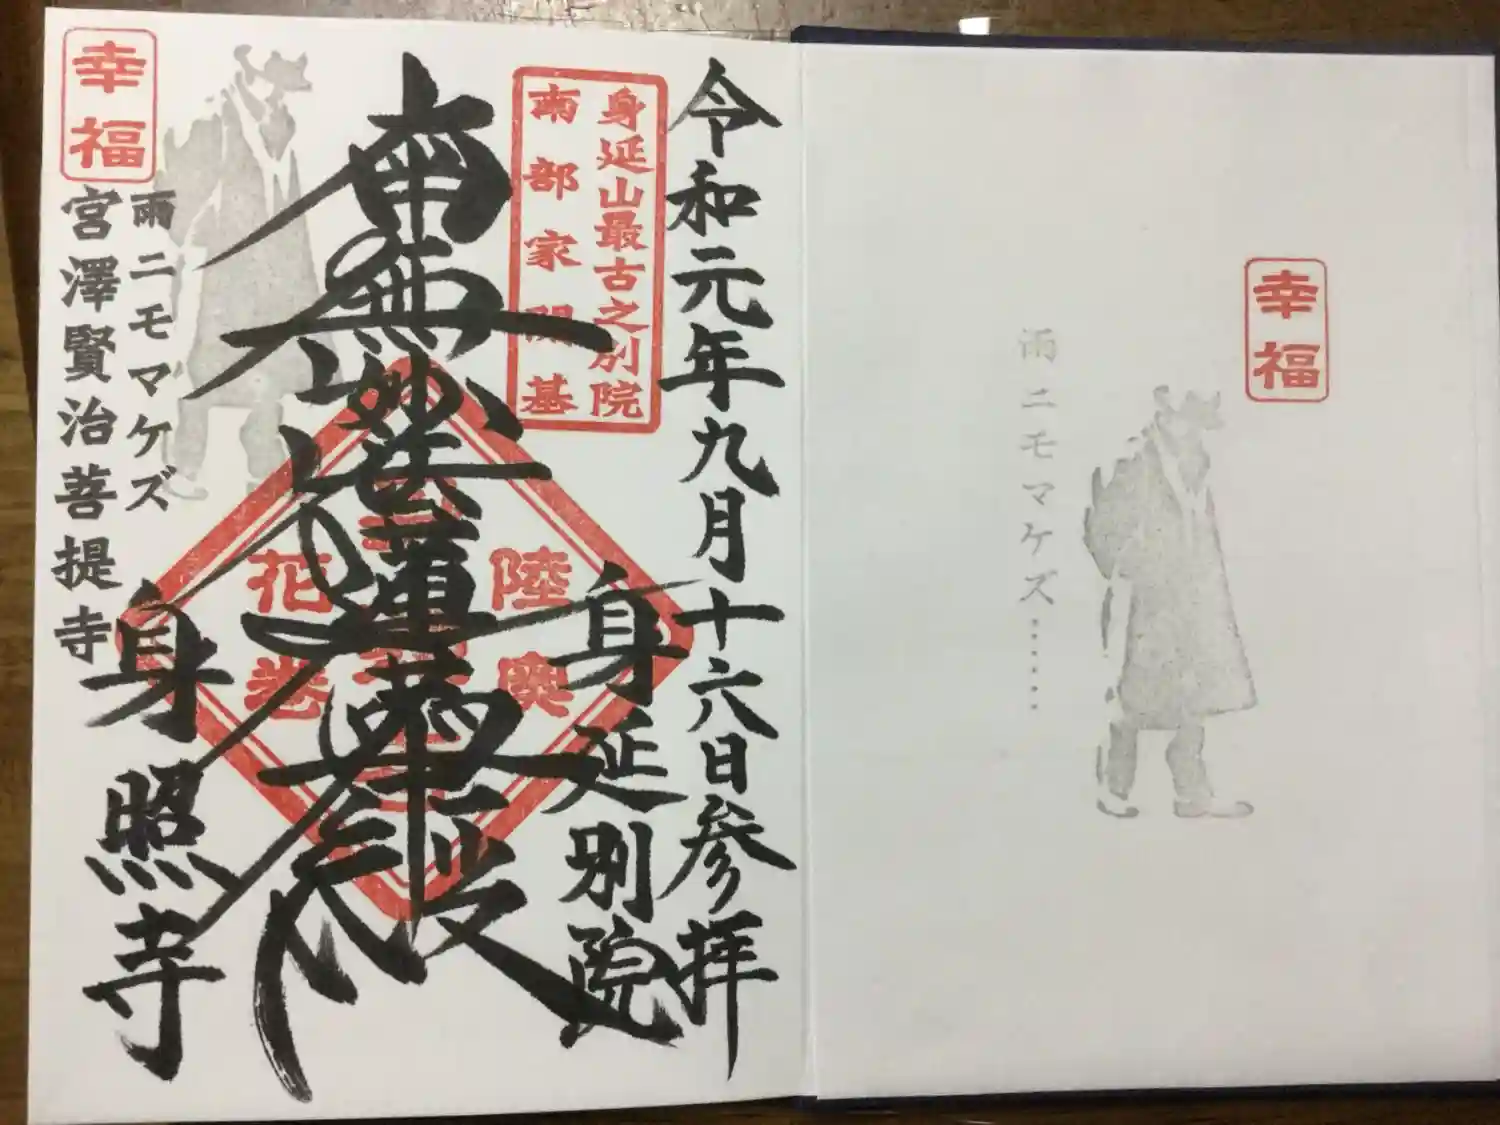 幸福
雨ニモマケズ.......
令和元年九月十六日参拝
身延山最古之別院
南部家開基
身延別院
南無妙法蓮華経
陸奥
花巻
身照寺
幸福
雨ニモマケズ
宮澤賢治菩提寺